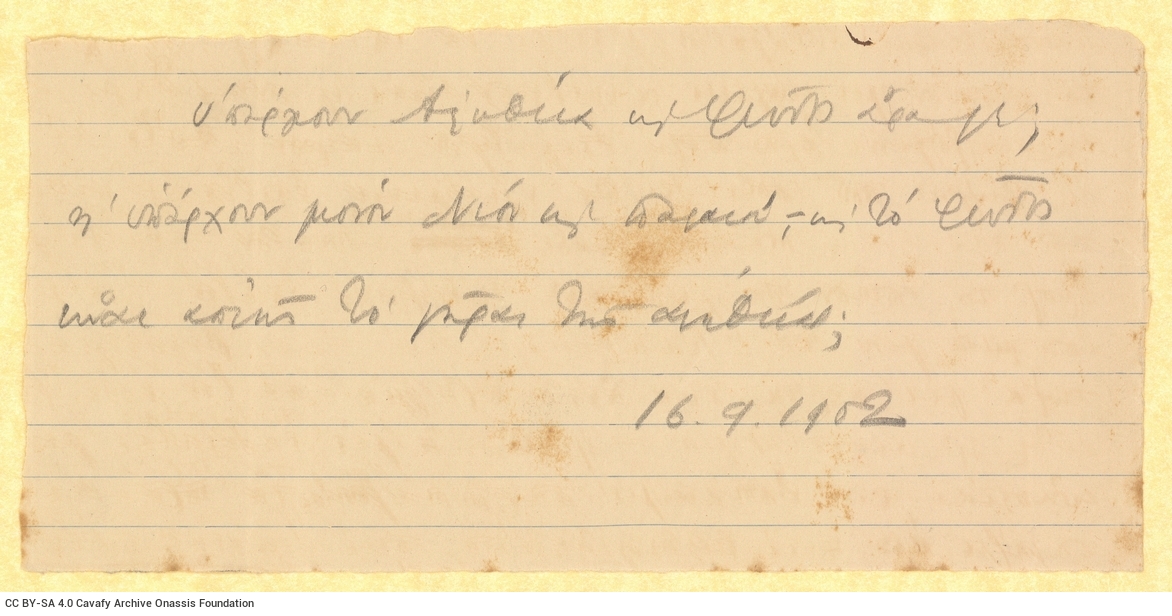 Υπάρχουν Αλήθεια και Ψεύδος άρα γε;
ή υπάρχουν μονόν Νέον και Παλαιά, – και το Ψεύδος
είναι απλώς το γήρας της αληθείας;
16.9.1902
CC BY-SA 4.0 Cavafy Archive Onassis Foundation